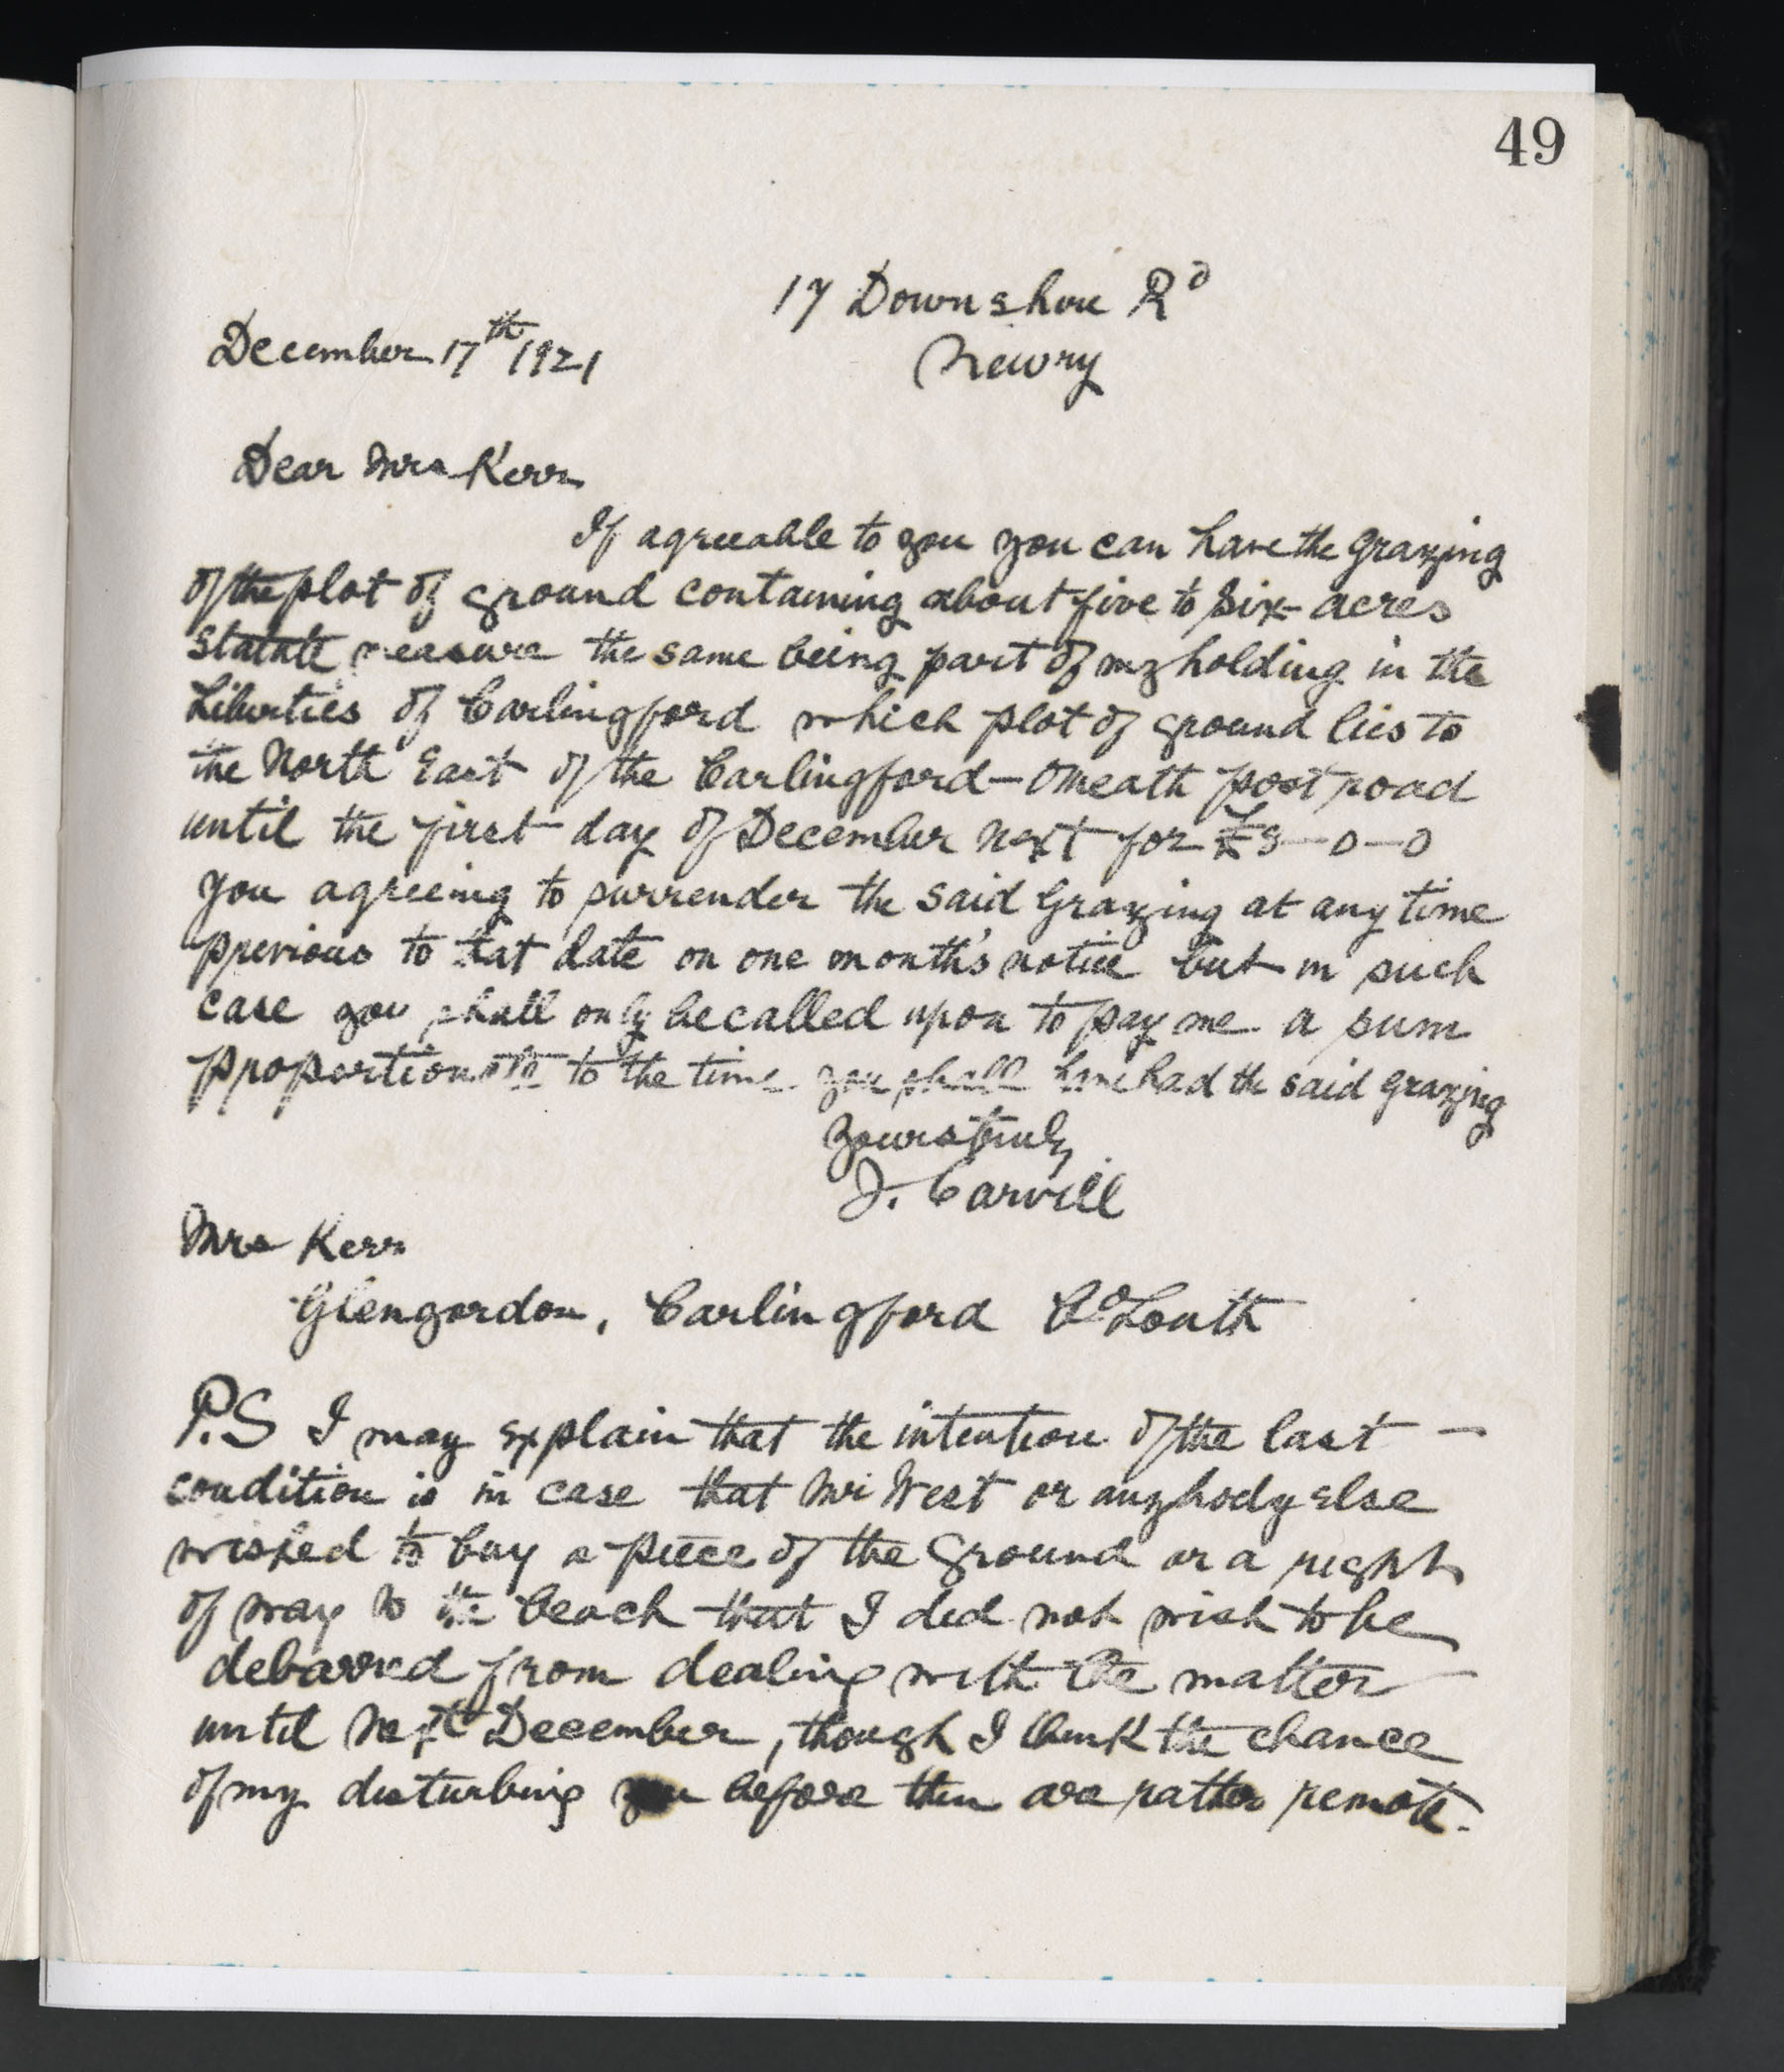 49
17 Downshire Rd
December 17th 1921
Newry
Dear Mrs Kerr
If agreeable to you you can have the grazing
of the plot of ground containing about five to six acres
statute measure the same being part of my holding in the
Liberties of Carlingford which plot of ground lies to
the North East of the Carlingford—Omeath post road
until the first day of December next for £8—0—0
you agreeing to surrender the said grazing at any time
previous to tat date on one month's notice but in such
case you shall only be called upon to pay me a sum
proportionate to the time you shall have had the said grazing
Yours truly
J. Carvill
Mrs Kerr
Glengordon, Carlingford Co Louth
P.S I may explain that the intention of the last —
condition is in case that Mr West or anybody else
wished to buy a piece of the ground or a right
of way to the beach that I did not wish to be
debarred from dealing with the matter —
until next December, though I think the chance
of my disturbing you before then are rather remote.